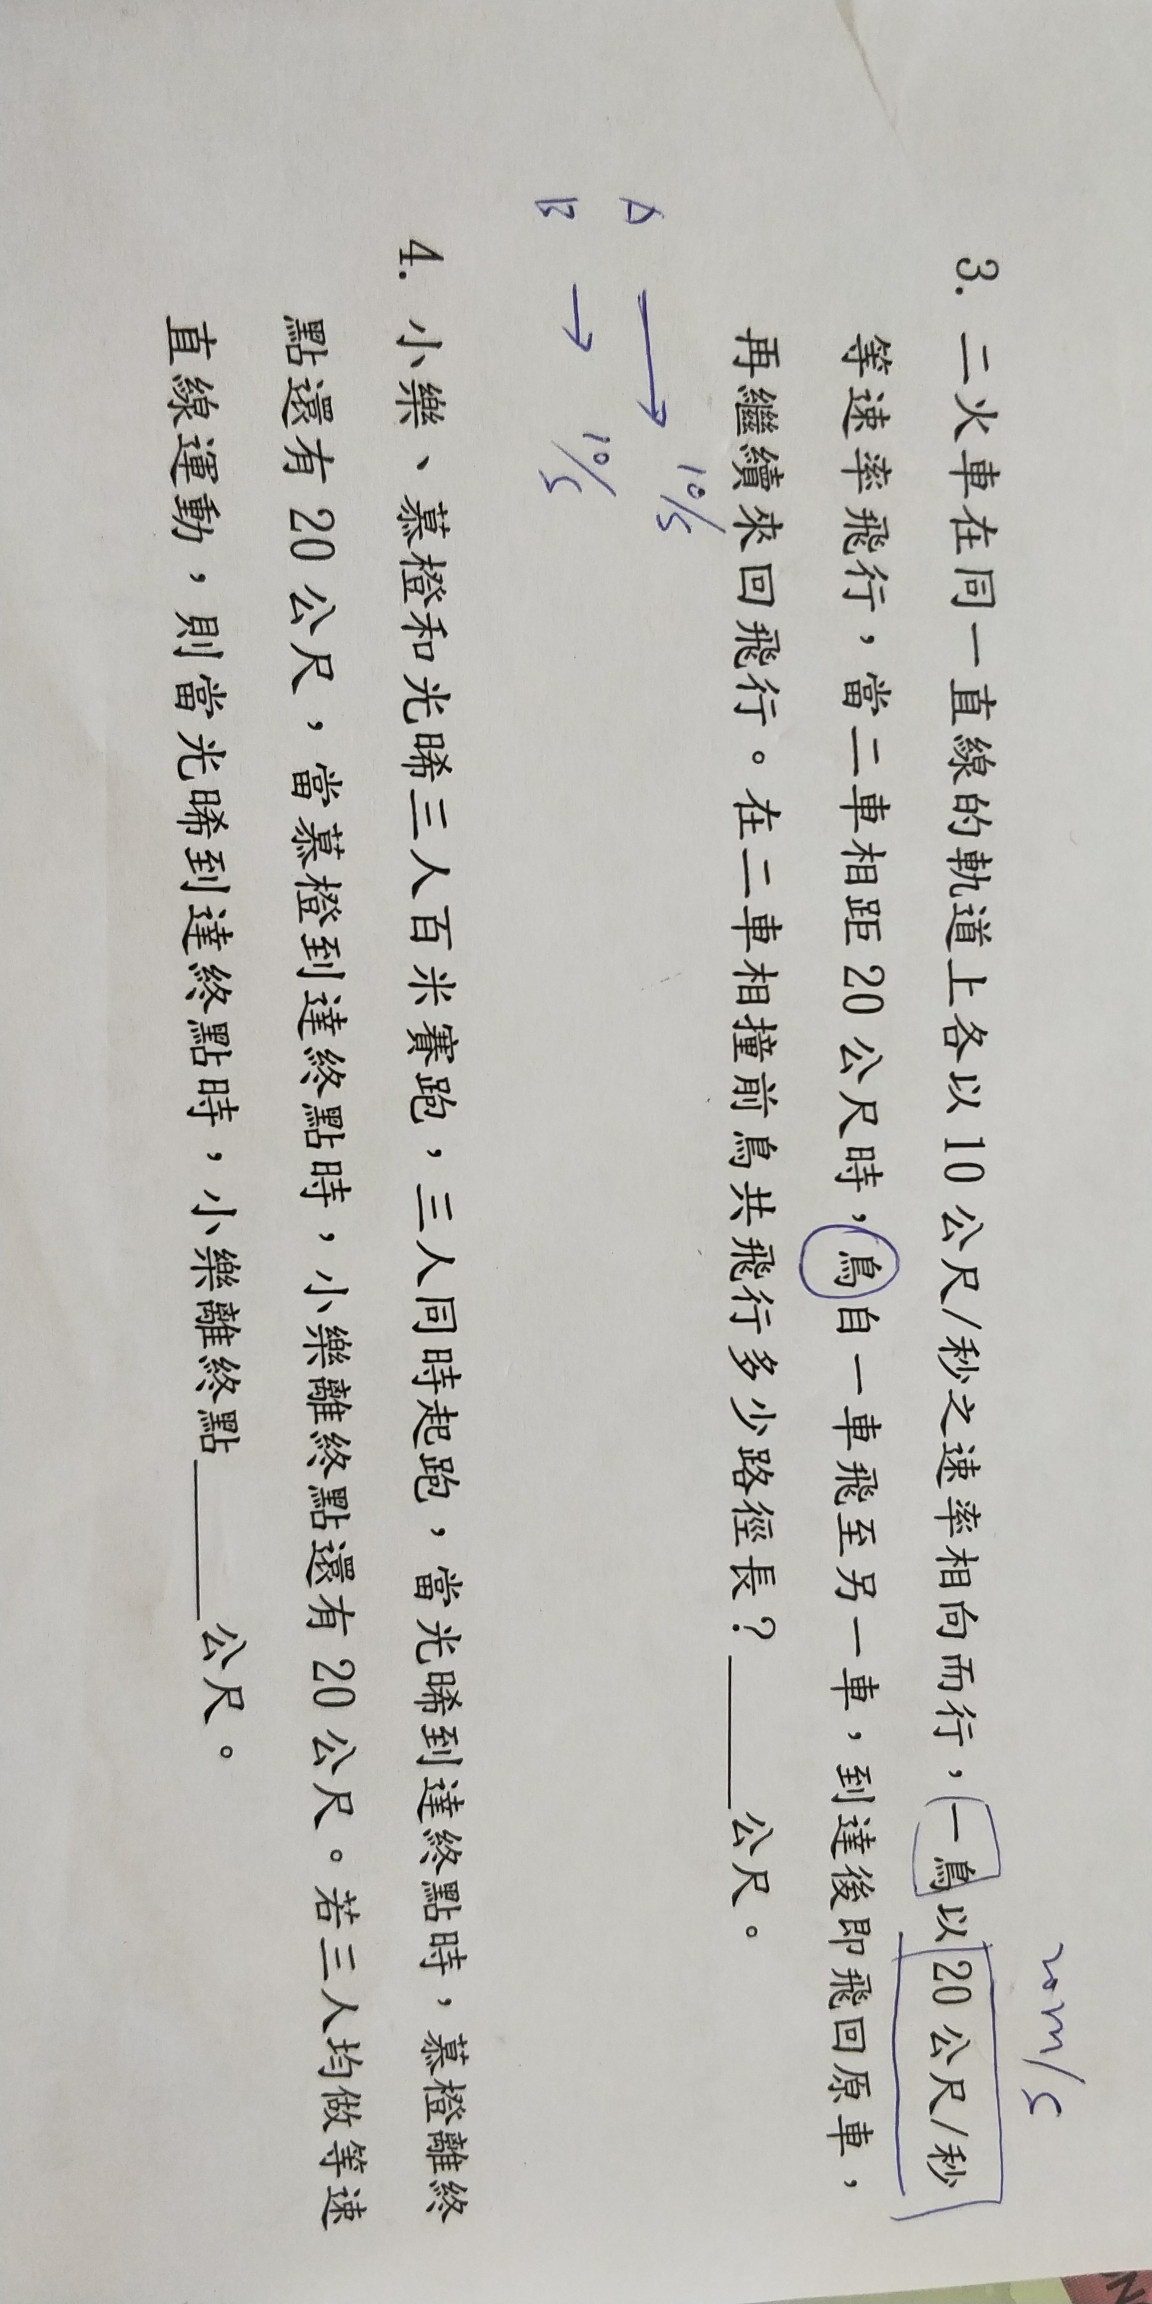 20m/s
3. 二火車在同一直線的軌道上各以10公尺/秒之速率相向而行，一鳥以20公尺/秒
等速率飛行，當二車相距20公尺時，鳥自一車飛至另一車，到達後即飛回原車，
再繼續來回飛行。在二車相撞前鳥共飛行多少路徑長？______公尺。
A → 10/s
B → 10/s
4. 小樂、慕橙和光晞三人百米賽跑，三人同時起跑，當光晞到達終點時，慕橙離終
點還有20公尺，當慕橙到達終點時，小樂離終點還有20公尺。若三人均做等速
直線運動，則當光晞到達終點時，小樂離終點______公尺。